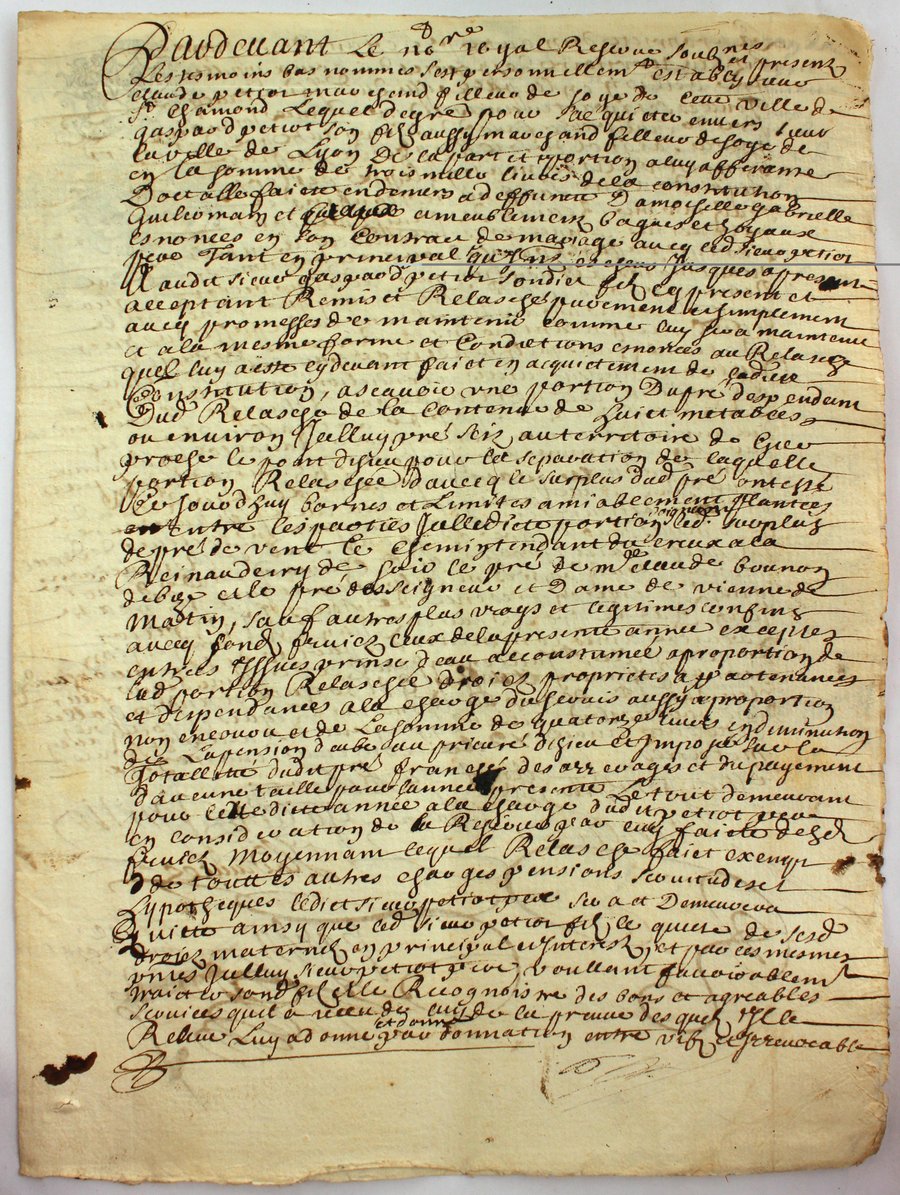 Pardevant Le no.re royal Reservé soubnes
Les tesmoins bas nommes s'est personnellem.t estably et present sieur
claude petiot marchand filleur de soye de cette ville de
S.t chamond Lequel de gré pour s'acquicter envers sieur
gaspard petiot son filz aussy marchand filleur de soye de
la ville de Lyon De la part et portion a luy afferante
en la somme de trois mille livres de la constitution
Doctalle faicte en deniers a deffuncte Damoiselle gabrielle
guilloman et quelques ameublement bagues et joyaux
esnonces en son contract de mariage avecq led sieur petiot
pere Tant en principal qu'Interestz jusques a present
A audit sieur gaspard petiot sondict filz cy present et
acceptant Remis et Relasché purement et simplement
avecq promesses de maintenir comme luy sera maintenu
et a la mesme forme et conditions esnoncés au Relasche
quel luy a esté cydevant faict en acquictement de ladicte
Constitution, ascavoir une portion Du pré despendant
Dud Relasche de la contenue de huict metables
ou environ Jcelluy pré scis au territoire de
proche le pont disieu pour la separation de laquelle
portion Relaschée d'avecq le surplus dud pré ont esté
ce jourdhuy bornes et Limites amiablement plantées
entre les parties Jcelle dicte portion led. surplus
de pré de vent le chemin tendant du creux a la
Reinaudiery de soir le pré de m.e claude bonnon
de bize et le pré des seigneur et Dame de vienne de
Matin, sauf autres plus vrays et legitimes confins
avecq fondz fruictz ceux de la presente année exceptes
entrées Issues prinse d'eau accoustumée a proportion de
lad portion Relaschée droictz proprietes appartenances
et despendances a la charge du servis aussy a proportion
non encouru et de La somme de quatorze livres en diminution
de La pension deube au prieuré disieu et Imposée sur la
Totallité dudit pré franches des arrerages et du payement
d'aucune taille pour lannée presente Le tout demeurant
pour cette ditte année a la charge dudit petiot pere
en consideration de la Reserve par luy faicte desd
fruictz Moyennant lequel Relasche faict exempt
de touttes autres charges pensions servitudes et
hypotheques ledict sieur petiot pere sera et Demeurera
Quitte ainsy que led sieur petiot filz le quicte de sesd
droictz maternelz en principal et Interestz, et par ces mesmes
pntes Jcelluy sieur petiot pere, voullant favorablem.t
traicter sond filz et le Recognoistre des bons et agreables
services quil a receu de luy de la preuve desquelz Jl le
Releve Luy a donné et donne par donnation entre vifz et jrrevocable